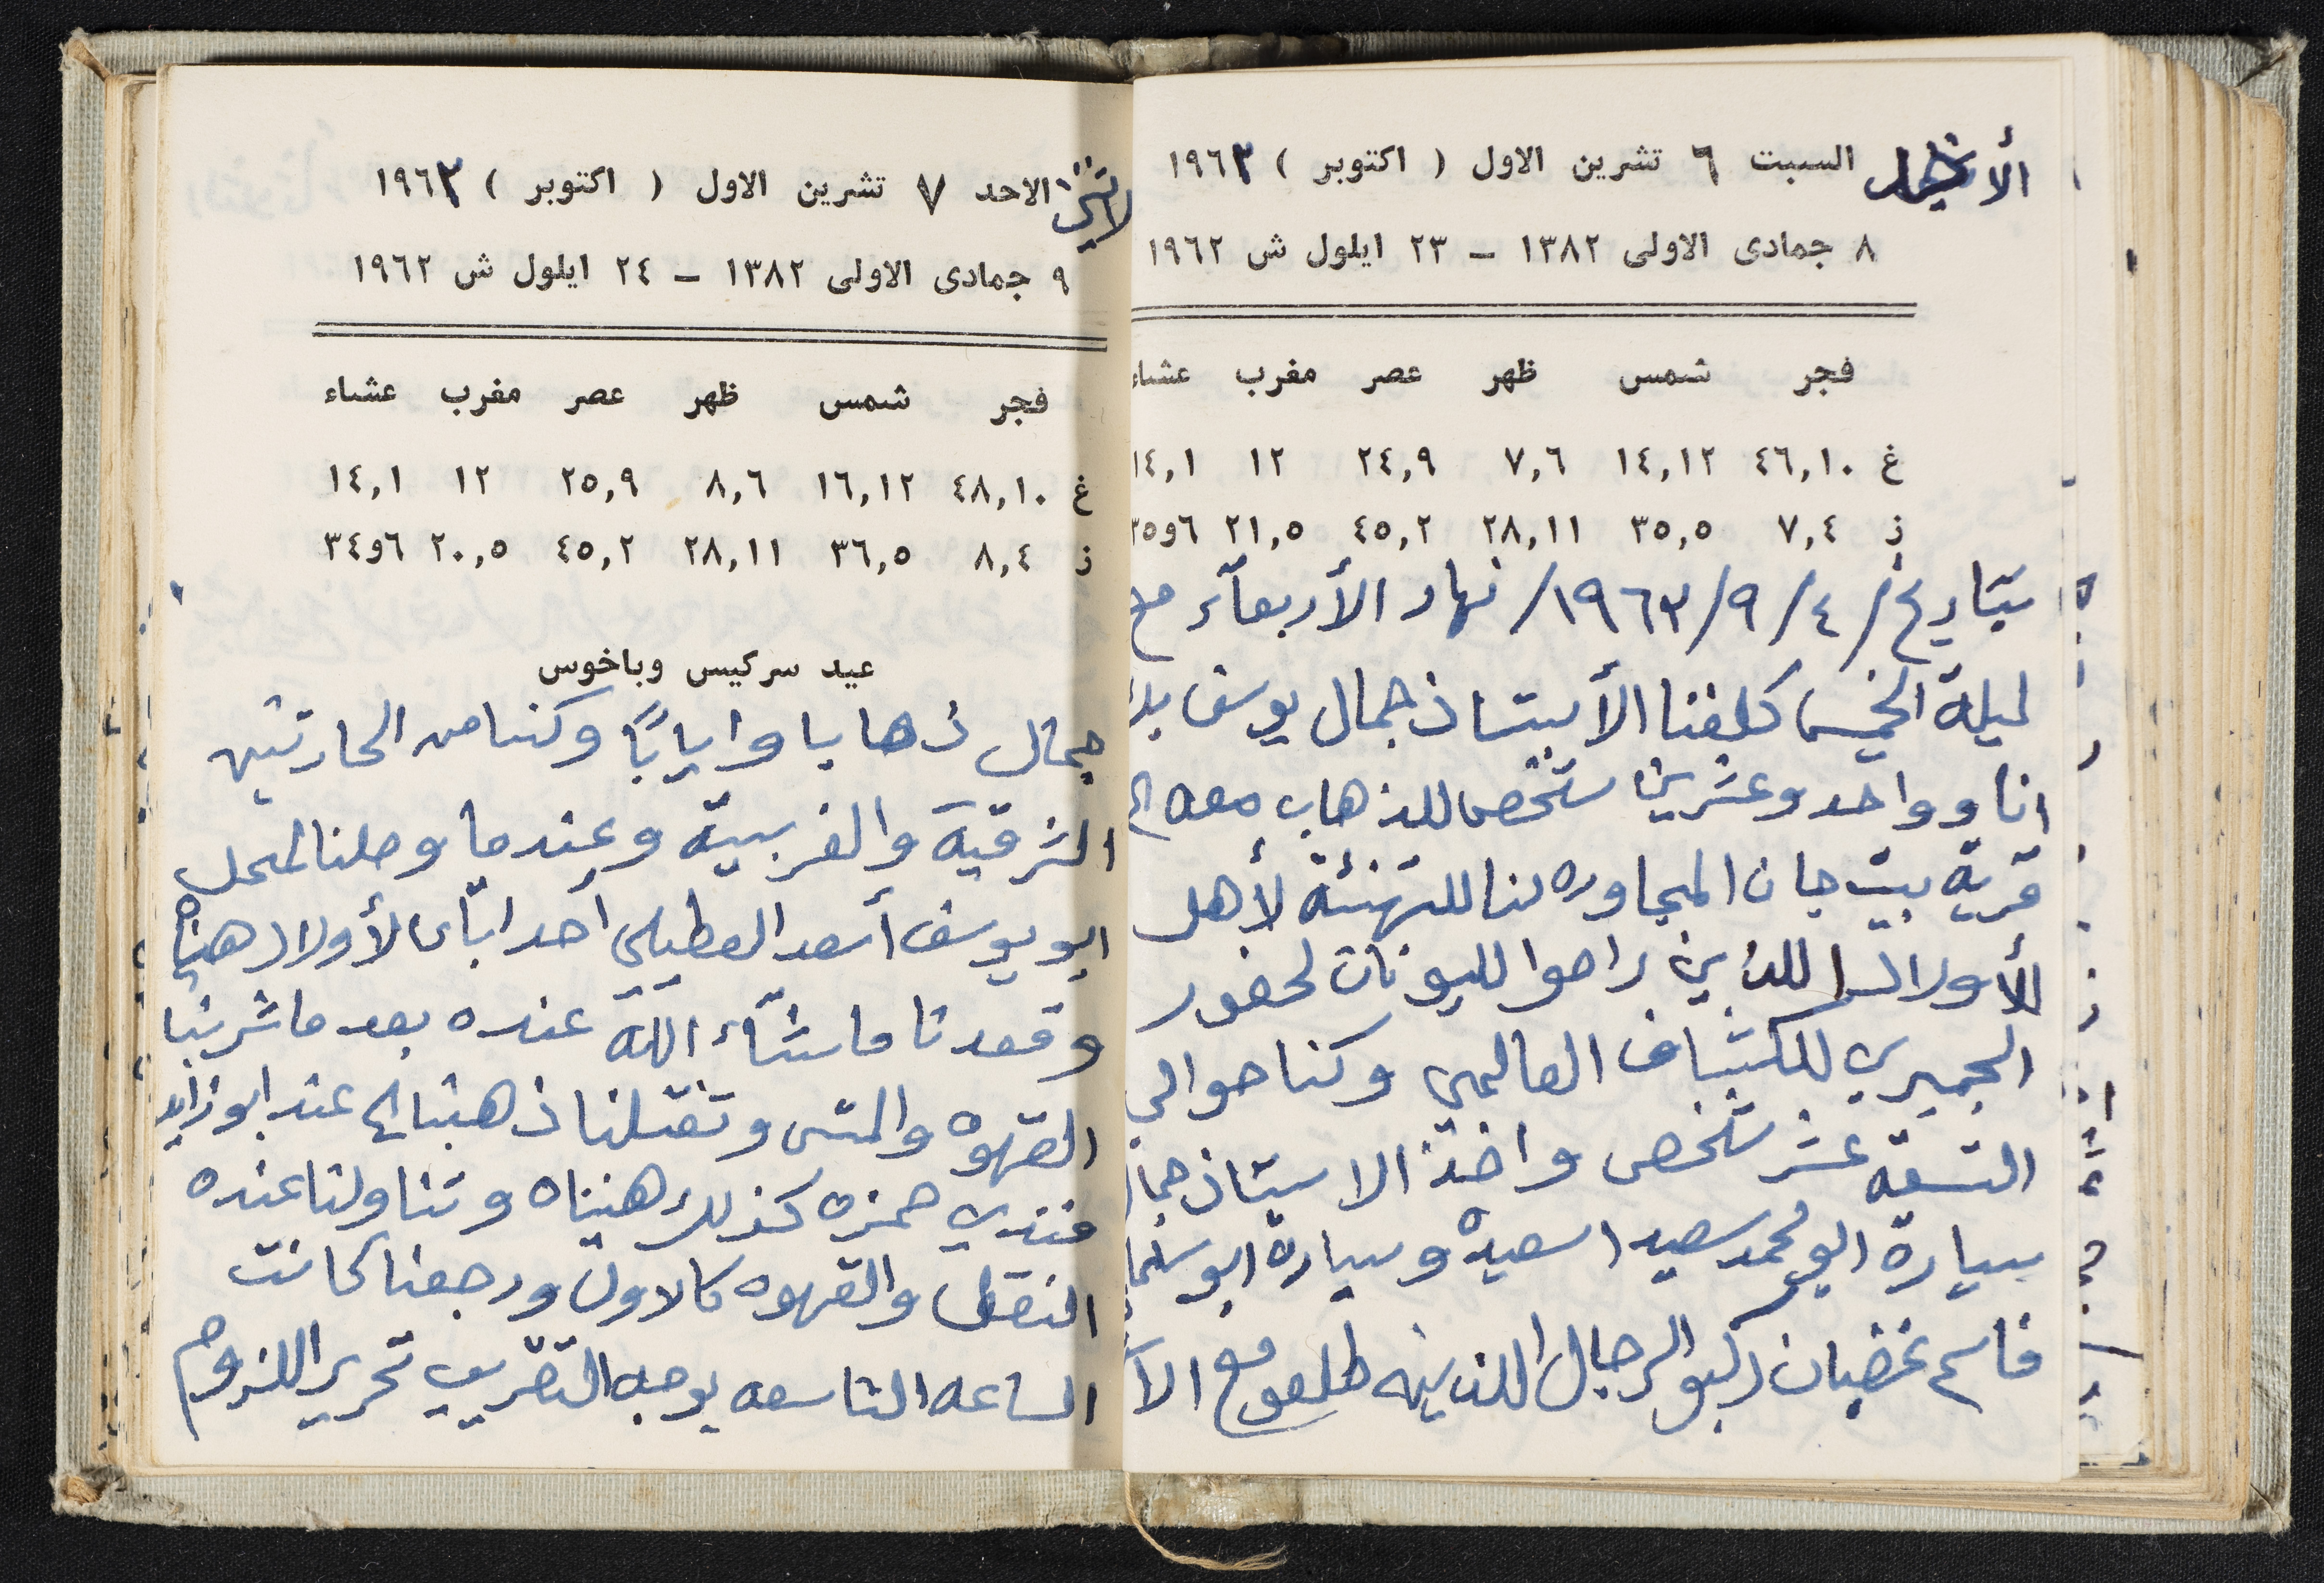 السبت ٦ تشرين الاول ( اكتوبر ) ١٩٦٣
٨ جمادى الاولى ١٣٨٢ – ٢٣ ايلول ش ١٩٦٢
فجر شمس ظهر عصر مغرب عشاء
غ ٤٦,١٠ ١٤,١٢ ٧,٦ ٢٤,٩ ١٢ ١٤,١
ز ٧,٤ ٣٥,٥ ٢٨,١١ ٤٥,٢ ٢١,٥ ٦و٣٥
بتاريخ /٤/٩/١٩٦٣/ نهار الأربعآء مع
ليلة الخميس كلفنا الأستاذ جمال يوسف بك
انا وواحد وعشرين شخص للذهاب معه الى
قرية بيت جان المجاوره لنا للتهنئة لأهل
الأولاد اللذين راحوا لليونان لحضور
الجمبري للكشاف العالمي وكنا حوالي
التسعة عشر شخص واخذ الاستاذ جمال
سيارة ابو محمد سعيد اسعيده وسيارة ابو سلمان
قاسم غضبان ركبو الرجال اللذينه طلعو مع الا
الاثنين الاحد ٧ تشرين الاول ( اكتوبر ) ١٩٦٣
٩ جمادى الاولى ١٣٨٢ – ٢٤ ايلول ش ١٩٦٢
فجر شمس ظهر عصر مغرب عشاء
غ ٤٨,١٠ ١٦,١٢ ٨,٦ ٢٥,٩ ١٢ ١٤,١
ز ٨,٤ ٣٦,٥ ٢٨,١١ ٤٥,٢ ٢٠,٥ ٦و٣٤
عيد سركيس وباخوس
جمال ذهابا وايابًا وكنا من الحارتين
الشرقية والغربية وعندما وصلنا لمحل
ابو يوسف أسعد العطيلي أحد ابآء الأولاد هنيناه
وقعدنا ما شآء الله عنده بعد ما شربنا
القهوه والمتى وتنقلنا ذهبنا الى عند ابو زايد
فندي حمزه كذلك هنيناه وتناولنا عنده
النقل والقهوه كالاول ورجعنا كانت
الساعه التاسعه بوجه التقريب تحرير اللزوم